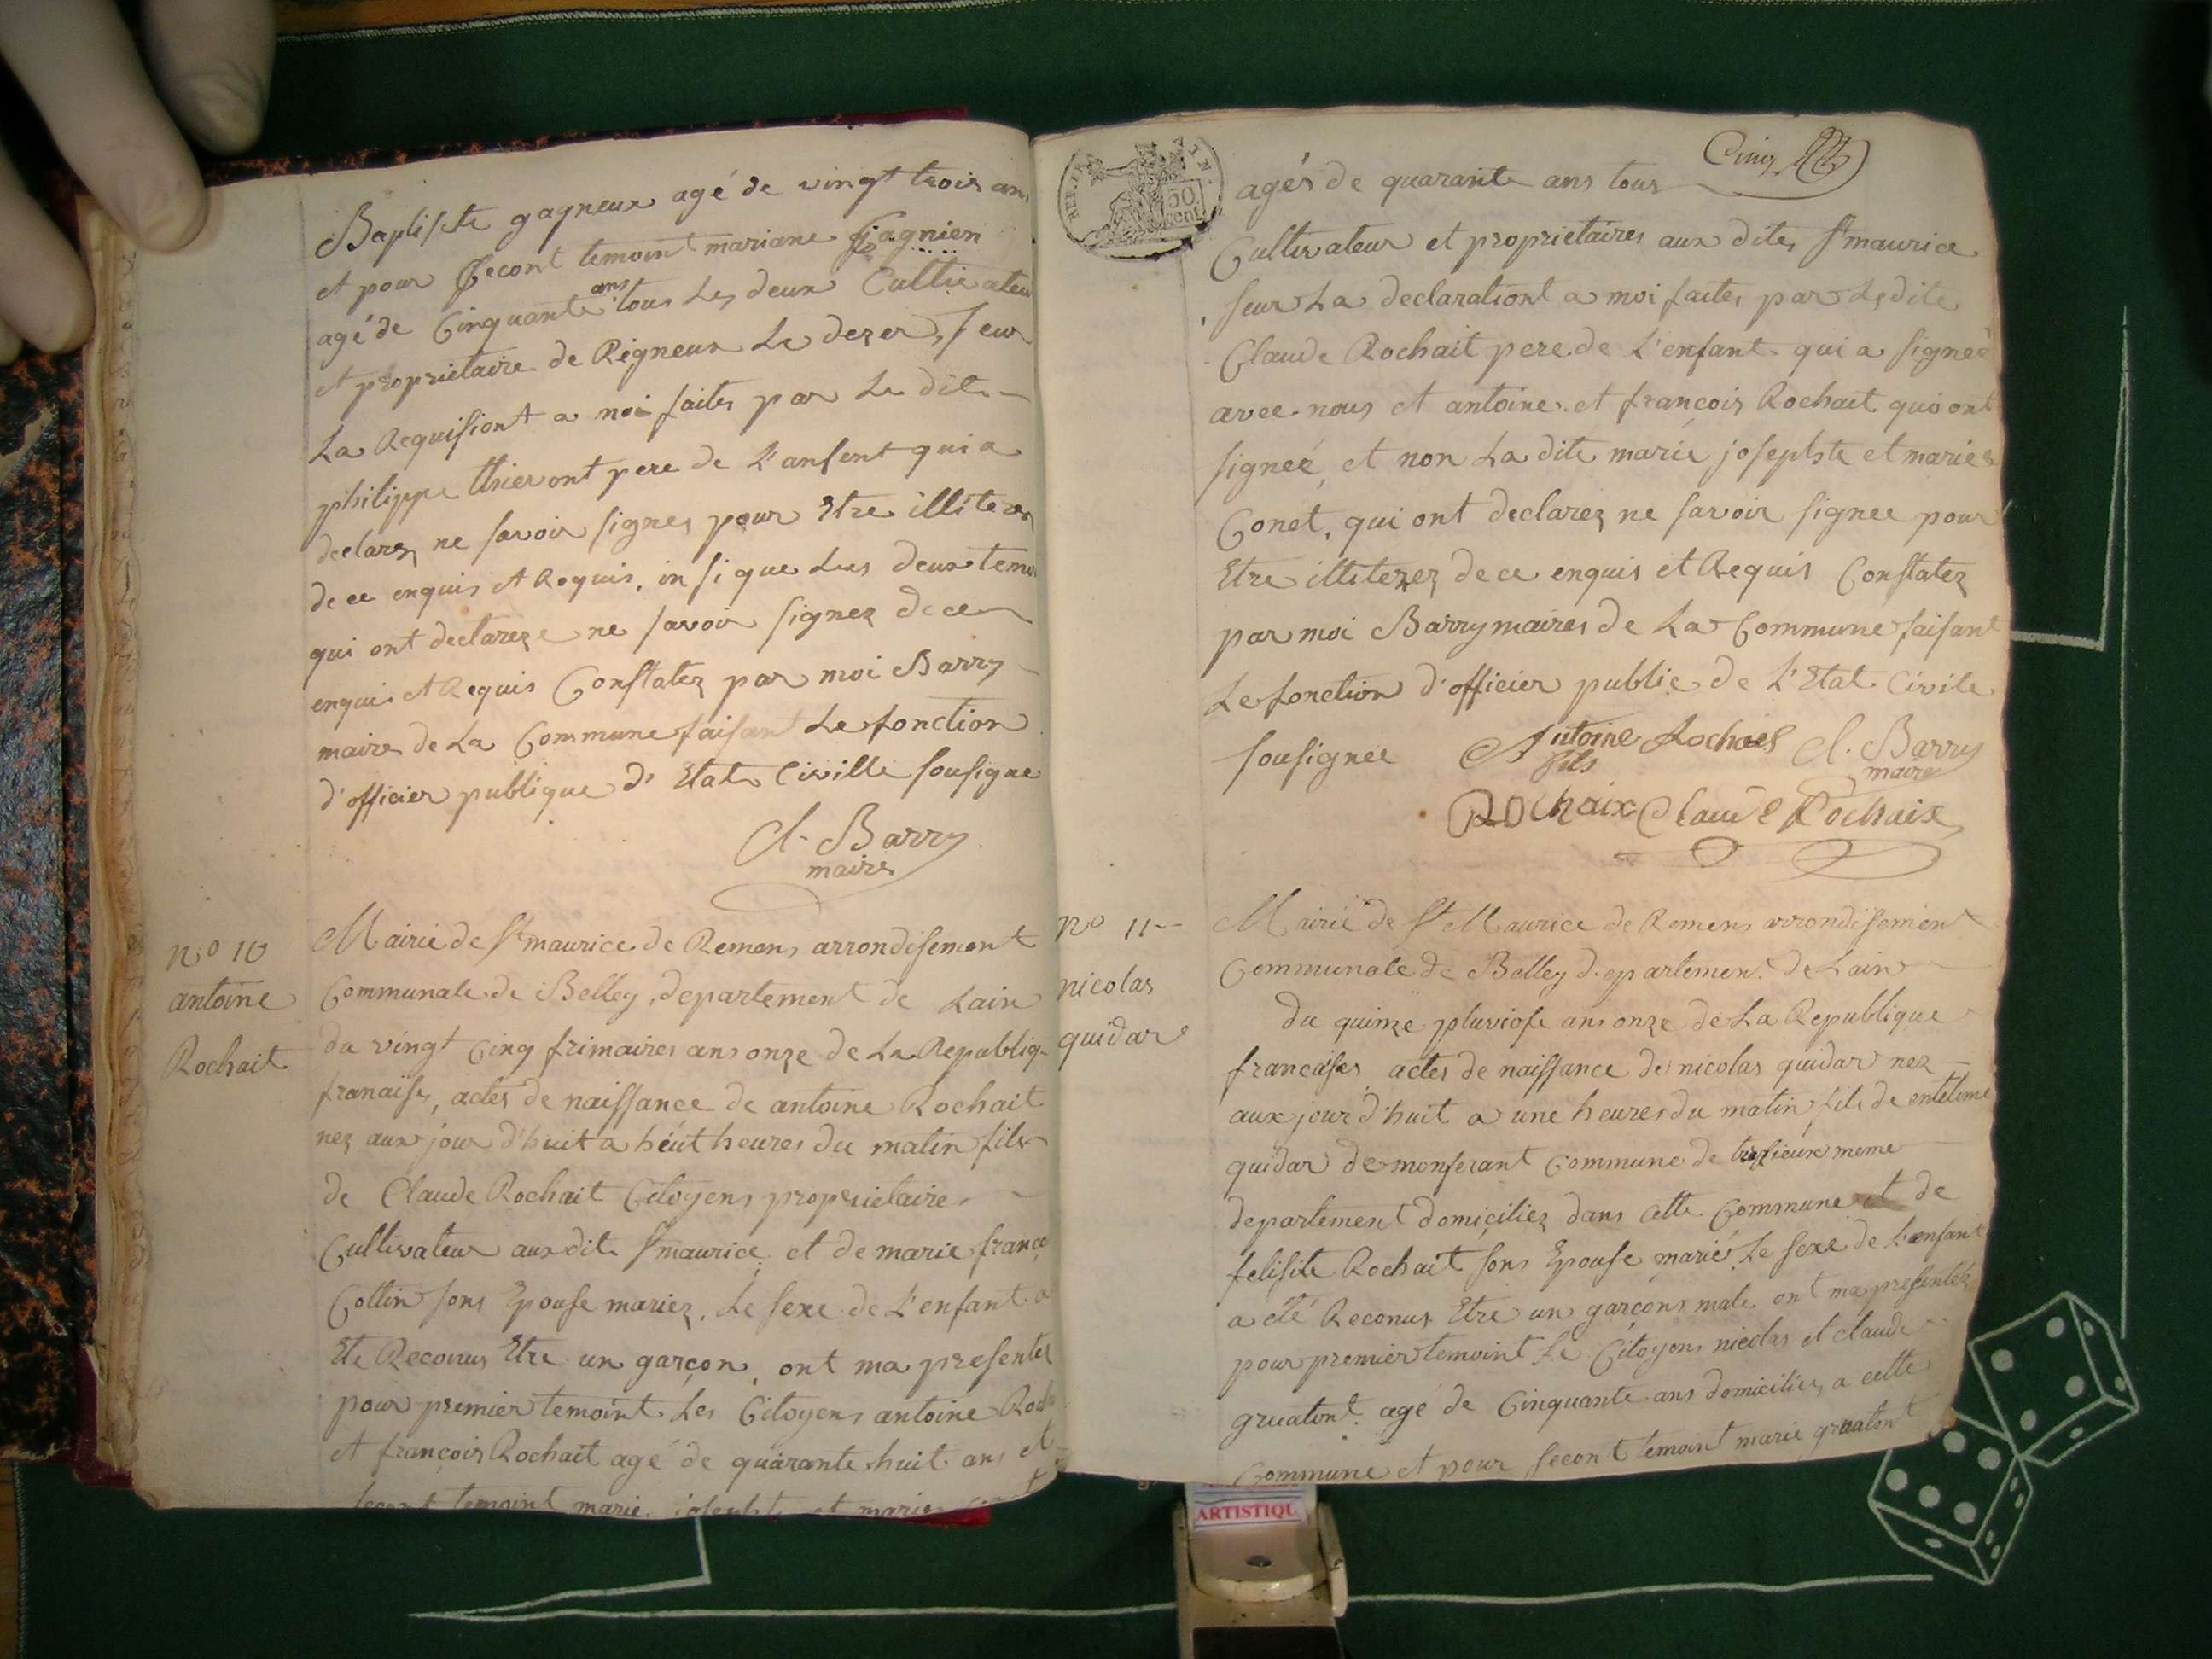 Baptiste gagneux agé de vingt trois ans
et pour secont temoint mariane gagnien
agé de Cinquante ans tous Les deux Cultivateur
et proprietaire de Rigneux Le dezer, seur
La Requisiont a moi faites par Le dit
philippe thieront pere de L'anfent qui a
declarez ne savoir signer pour Etre illiterez
de ce enquis et Requis, insi que Les deux temoi
qui ont declareze ne savoir signez de ce
enquis et Requis Constatez par moi Barry
maire de La Commune faisant Le fonction
d'officier publique d'Etat Civille sousigne
Cl. Barry
maire
no 10
antoine
Rochait
Mairie de St maurice de Remens arrondisement
Communale de Belley, departement de Lain
du vingt Cinq frimaires ans onze de La Republiq
franaise, actes de naissance de antoine Rochait
nez aux jour d'huit a heut heures du matin fils
de Claude Rochait Citoyens proprietaire
Cultivateur aux dit St maurice et de marie franç
Collin sons Epouse mariez. Le sexe de L'enfant a
Ete Reconus Etre un garçon, ont ma presentez
pour premier temoint Les Citoyens antoine Roch
et françois Rochait agé de quarante huit ans et
secont temoint marie josephte et marie
Cinq
REP. FRA
50 cent
agés de quarante ans tous
Cultivateur et proprietaires aux dites St maurice
seur La declarationt a moi faites par Le dite
Claude Rochait pere de L'enfant qui a signeé
avec nous et antoine et françois Rochait qui ont
signeé, et non La dite marie josephte et marie
Conet, qui ont declarez ne savoir signee pour
Etre illiterez de ce enquis et Requis Constatez
par moi Barry maires de La Commune faisant
Le fonction d'officier public de L'Etat Civile
sousignee Antoine Rochais Cl. Barry
fils maire
ROchaix Claude Rochaix
no 11
nicolas
quidar
Mairie de St Maurice de Remens arrondisement
Communale de Belley departement de Lain
du quinze pluviose ans onze de La Republique
francaises actes de naissance de nicolas quidar nez
aux jour d'huit a une heures du matin fils de entelome
quidar de monferant Commune de même
departement domiciliez dans cette Commune et de
felisite Rochait sons Epouse marié Le sexe de L'enfant
a été Reconus Etre un garçons male ont ma presentéz
pour premier temoint Le Citoyens nicolas et claude
gruatont agé de Cinquante ans domiciliez a cette
Commune et pour secont temoint marie gruatont
ARTISTIQU